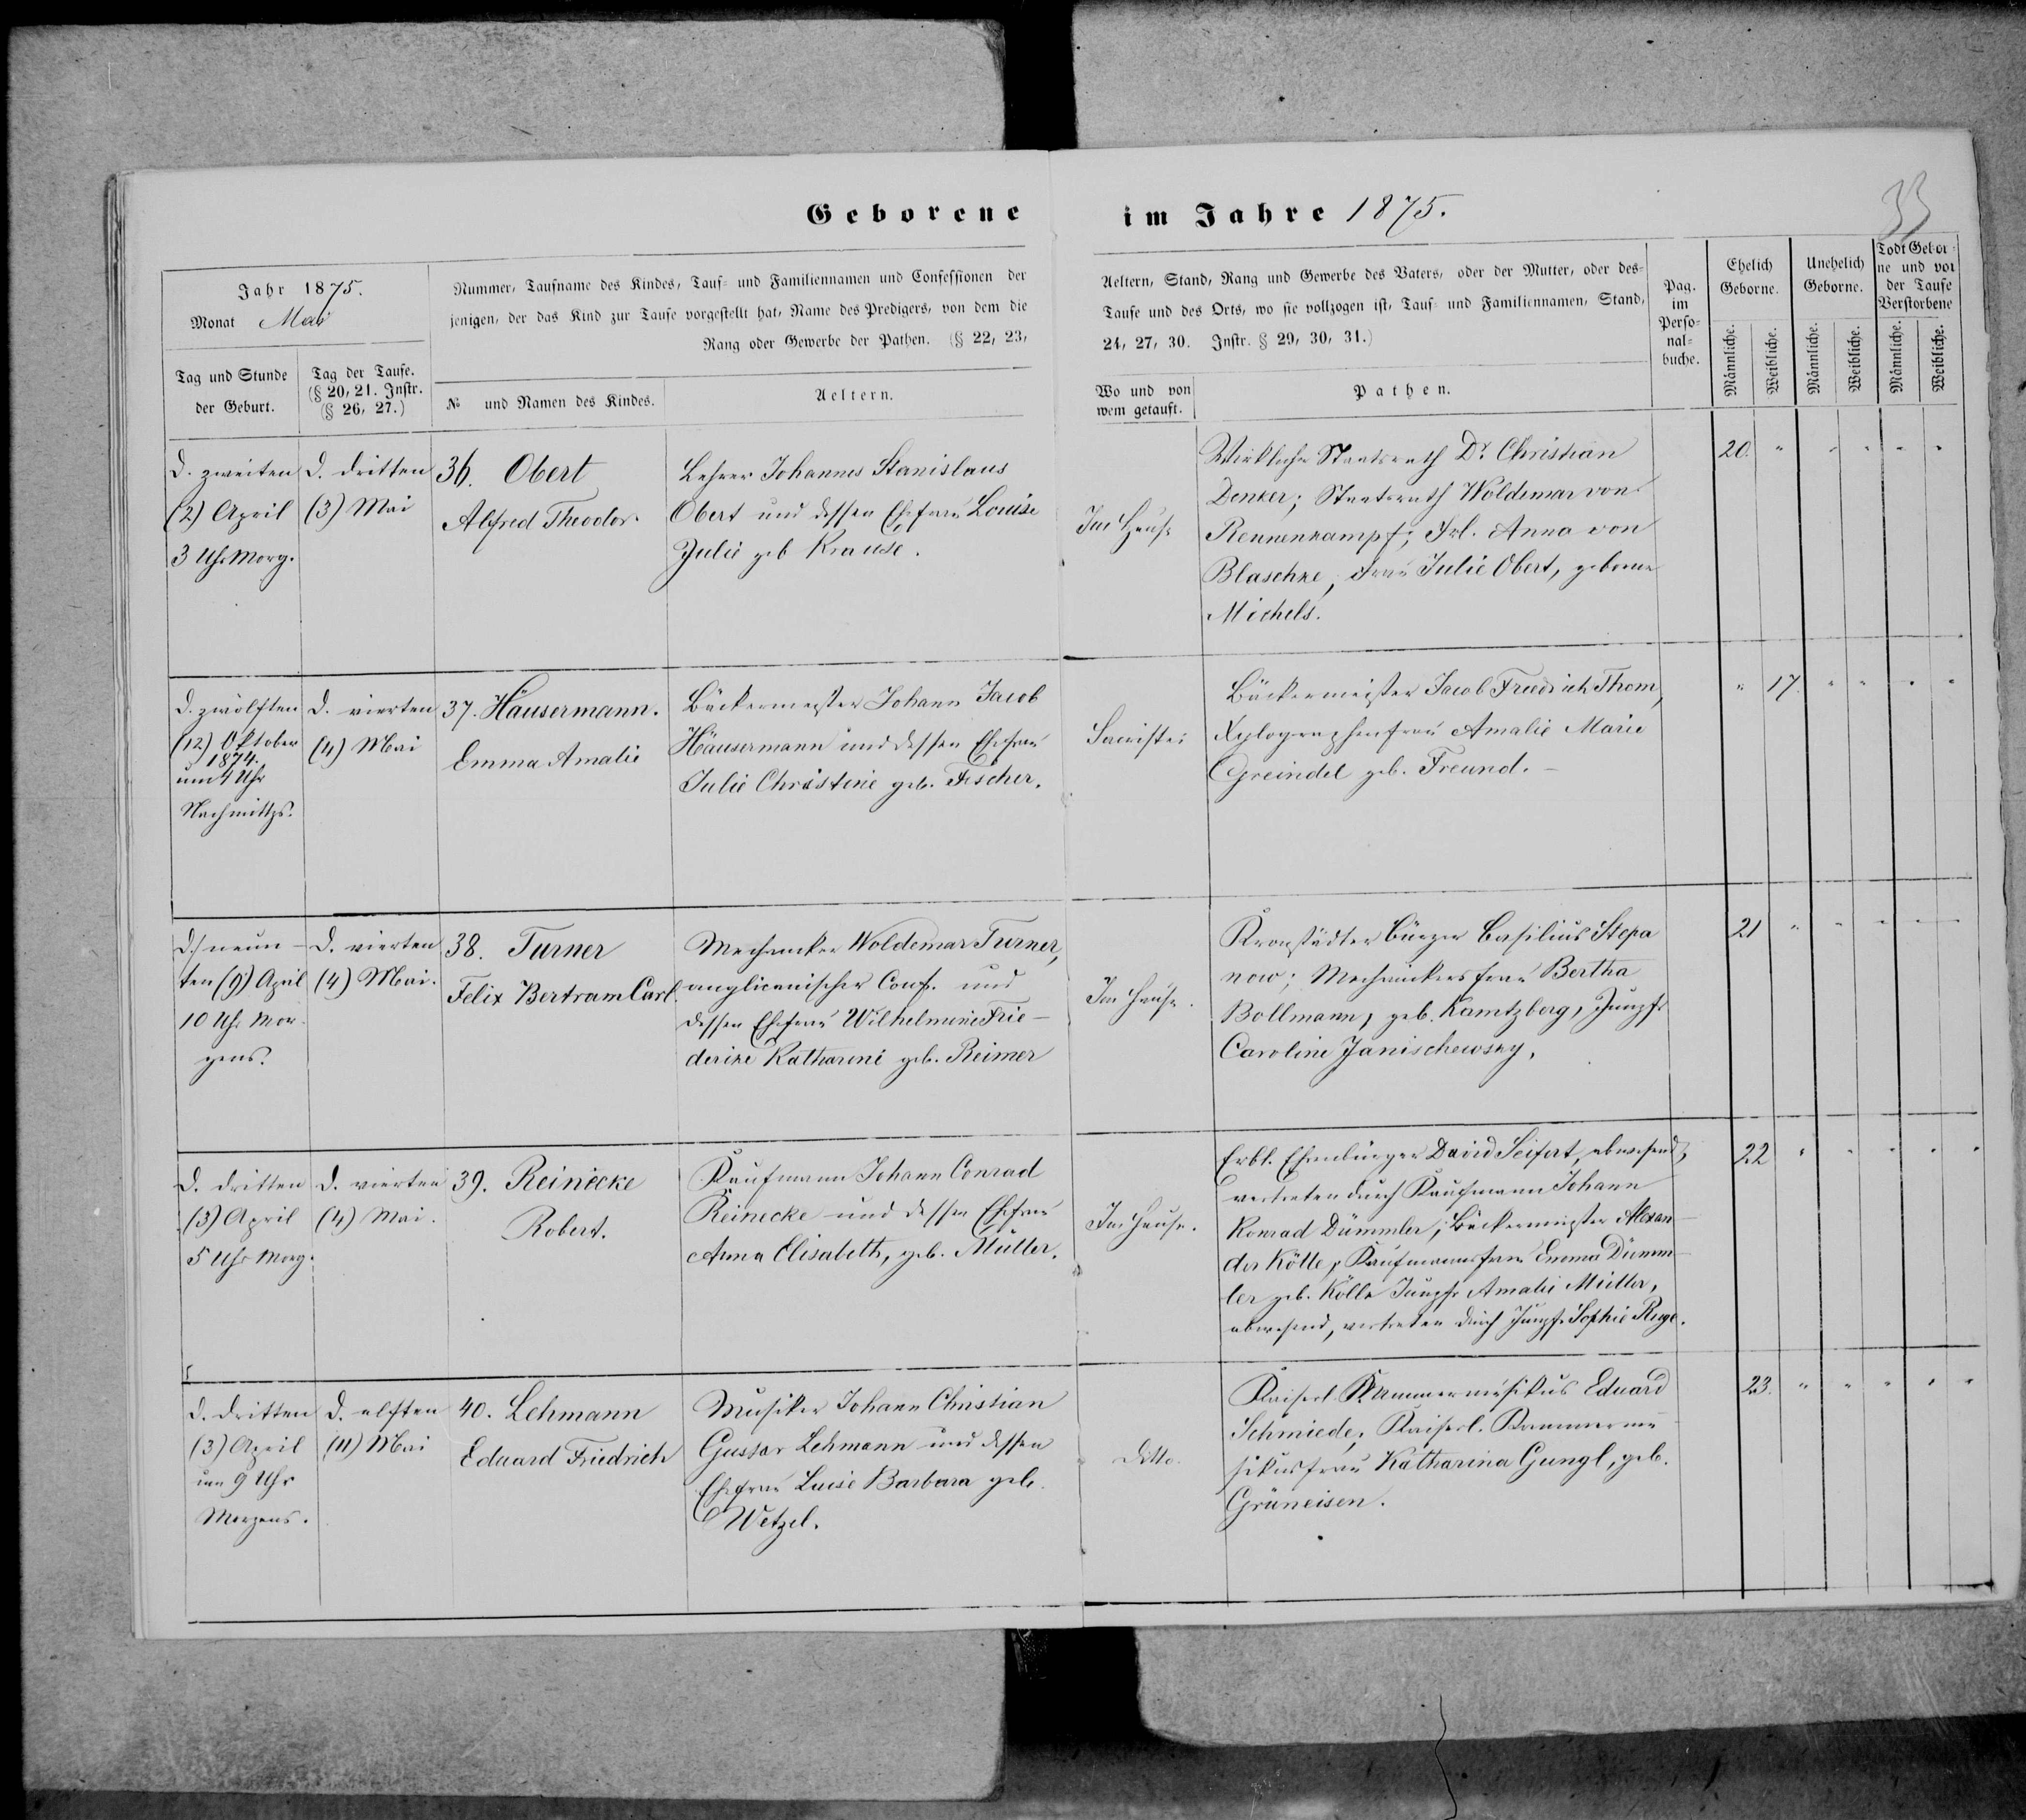 Geborene im Jahre 1875.
33
Jahr 1875.
Monat Mai
Nummer, Taufname des Kindes, Tauf- und Familiennamen und Confessionen der
jenigen, der das Kind zur Taufe vorgestellt hat, Name des Predigers, von dem die
Rang oder Gewerbe der Pathen. (§ 22, 23,
Aeltern, Stand, Rang und Gewerbe des Vaters, oder der Mutter, oder des-
Taufe und des Orts, wo sie vollzogen ist, Tauf- und Familiennamen, Stand,
24, 27, 30. Instr. § 29, 30, 31.)
Pag.
im
Perso-
nal-
buche.
Ehelich
Geborne.
Unehelich
Geborne.
Todt Gebor-
ne und vor
der Taufe
Verstorbene
Männliche.
Weibliche.
Männliche.
Weibliche.
Männliche.
Weibliche.
Tag und Stunde
der Geburt.
Tag der Taufe.
(§ 20, 21. Instr.
(§ 26, 27.)
№ und Namen des Kindes.
Aeltern.
Wo und von
wem getauft.
Pathen.
D. zweiten
(2) April
3 Uhr Morg.
D. dritten
(3) Mai
36. Obert
Alfred Theodor.
Lehrer Johannes Stanislaus
Obert und dessen Ehefrau Louise
Julie geb Krause.
Im Hause
Wirklicher Staatsrath Dr. Christian
Denker; Staatsrath Woldemar von
Rennenkampf; Frl. Anna von
Blaschke, Frau Julie Obert, geborne
Michels.
20. " " " " "
D. zwölften
(12) Oktober
1874.
um 4 Uhr
Nachmittgs.
D. vierten
(4) Mai
37. Häusermann.
Emma Amalie
Bäckermeister Johann Jacob
Häusermann und dessen Ehefrau
Julie Christine geb. Fischer.
Sacristei
Bäckermeister Jacob Friedrich Thom,
Xylographenfrau Amalie Marie
Greindel geb. Freund. –
" 17. " " " "
D. neun-
ten (9) April
10 Uhr Mor-
gens.
D. vierten
(4) Mai.
38. Turner
Felix Bertram Carl.
Mechaniker Woldemar Turner,
anglicanischer Conf. und
dessen Ehefrau Wilhelmine Frie-
derike Katharine geb. Reimer
Im Hause.
Kronstädter Bürger Basilius Stepa
now; Mechanikersfrau Bertha
Bollmann, geb. Kamtzberg, Jungfr
Caroline Janischewsky.
21 " " " " "
D. dritten
(3) April
5 Uhr Morg.
D. vierten
(4) Mai.
39. Reinecke
Robert.
Kaufmann Johann Conrad
Reinecke und dessen Ehefrau
Anna Elisabeth, geb. Müller.
Im Hause.
Erbl. Ehrenbürger David Seifert, abwesend,
vertreten durch Kaufmann Johann
Konrad Dümmler; Bäckermeister Alexan-
der Kölle, Kaufmannsfrau Emma Dümm-
ler geb. Kölle Jungfr Amalie Müller,
abwesend, vertreten durch Jungfr. Sophie Ruge.
22 " " " " "
D. dritten
(3) April
um 9 Uhr
Morgens.
D. elften
(11) Mai
40. Lehmann
Eduard Friedrich
Musiker Johann Christian
Gustav Lehmann und dessen
Ehefrau Luise Barbara geb.
Wetzel.
Ditto.
Kaiserl. Kammermusikus Eduard
Schmiede, Kaiserl. Kammermu-
sikusfrau Katharina Gungl, geb.
Grüneisen.
23. " " " " "